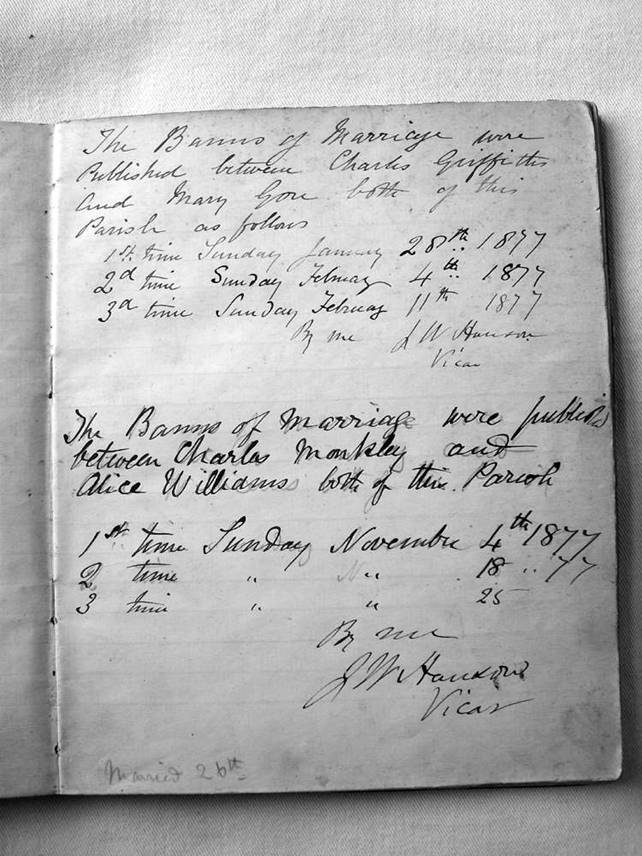 The Banns of Marriage were
Published between Charles Griffiths
and Mary Gore both of this
Parish as follows
1st time Sunday January 28th 1877
2d time Sunday February 4th 1877
3d time Sunday February 11th 1877
By me J W Hanson
Vicar
The Banns of Marriage were publis
between Charles Monkley and
Alice Williams both of this Parish
1st time Sunday November 4th 1877
2 time " " 18 " 77
3 time " " 25
By me
J W Hanson
Vicar
Married 26th